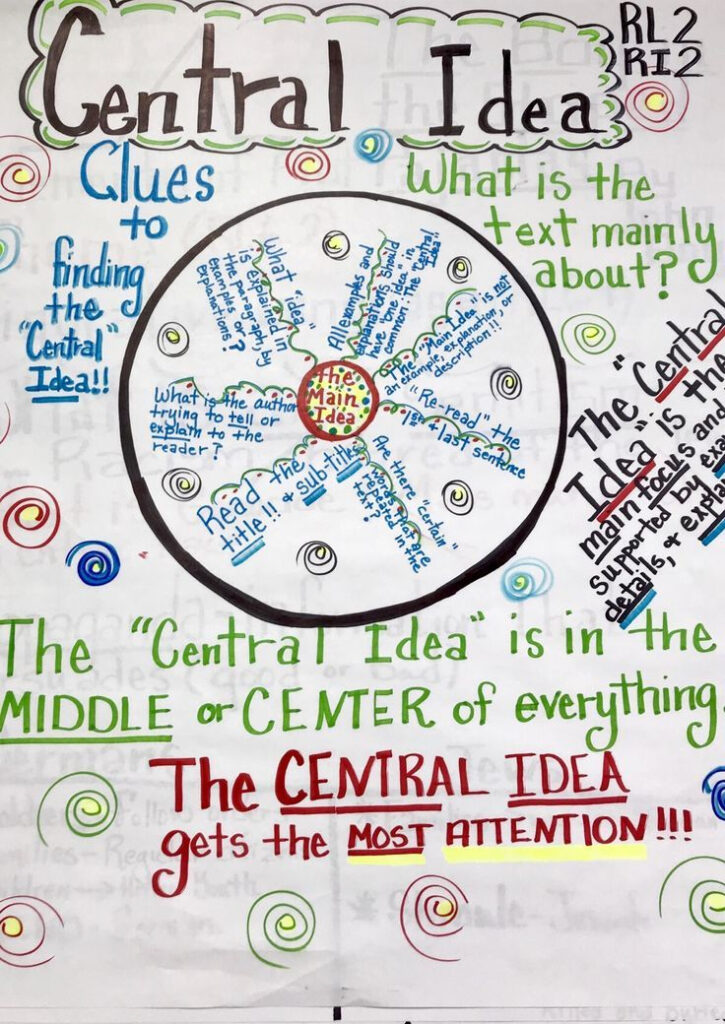 Central Idea
RL2
RI2
Clues
to
finding
the
"Central"
Idea!!
What is the
text mainly
about?
The
Main
Idea
What "idea"
is explained in
the paragraph, by
examples or
explanations?
All examples and
explanations should
have "one idea" in
common. The "Central
Idea!!
The "Main Idea" is not
an example, explanation, or
description!!
"Re-read" the
1st & last sentence
Are there "certain"
words that are
repeated in the
text?
Read the
title!! & sub-titles
What is the author
trying to tell or
explain to the
reader?
The "Central
Idea" is the
main focus and
supported by
details, &
The "Central Idea" is in the
MIDDLE or CENTER of everything.
The CENTRAL IDEA
gets the MOST ATTENTION!!!